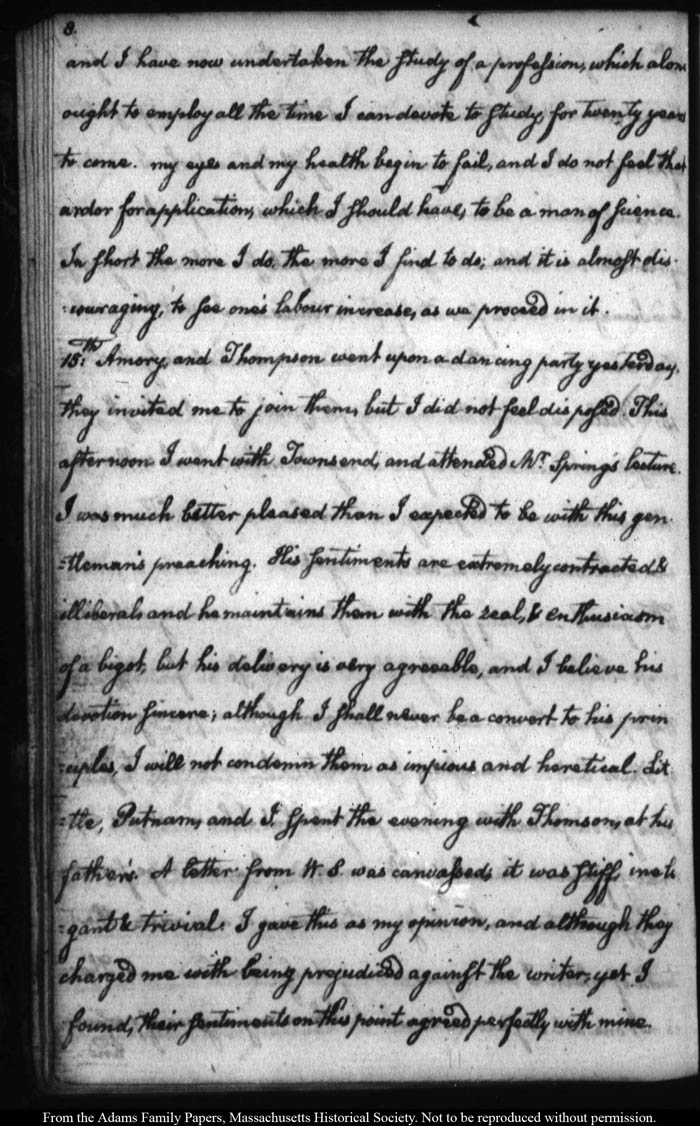 8.
and I have now undertaken the study of a profession, which alone
ought to employ all the time I can devote to study, for twenty years
to come. my eyes and my health begin to fail, and I do not feel that
ardor for application, which I should have, to be a man of science.
In short the more I do, the more I find to do; and it is almost dis-
:couraging, to see one's labour increase, as we proceed in it.
18:th Amory, and Thompson went upon a dancing party yesterday,
they invited me to join them, but I did not feel disposed. This
afternoon I went with Townsend, and attended Mr. Spring's lecture.
I was much better pleased than I expected to be with this gen-
=tleman's preaching. His sentiments are extremely contracted &
illiberal, and he maintains them with the zeal, & enthusiasm
of a bigot, but his delivery is very agreeable, and I believe his
devotion sincere; although I shall never be a convert to his prin
=ciples, I will not condemn them as impious and heretical. Lit
=tle, Putnam, and I spent the evening with Thomson, at his
father's. A letter from W. S. was canvassed, it was stiff, inele
=gant & trivial. I gave this as my opinion, and although they
charged me with being prejudiced against the writer, yet I
found, their sentiments on this point agreed perfectly with mine.
From the Adams Family Papers, Massachusetts Historical Society. Not to be reproduced without permission.